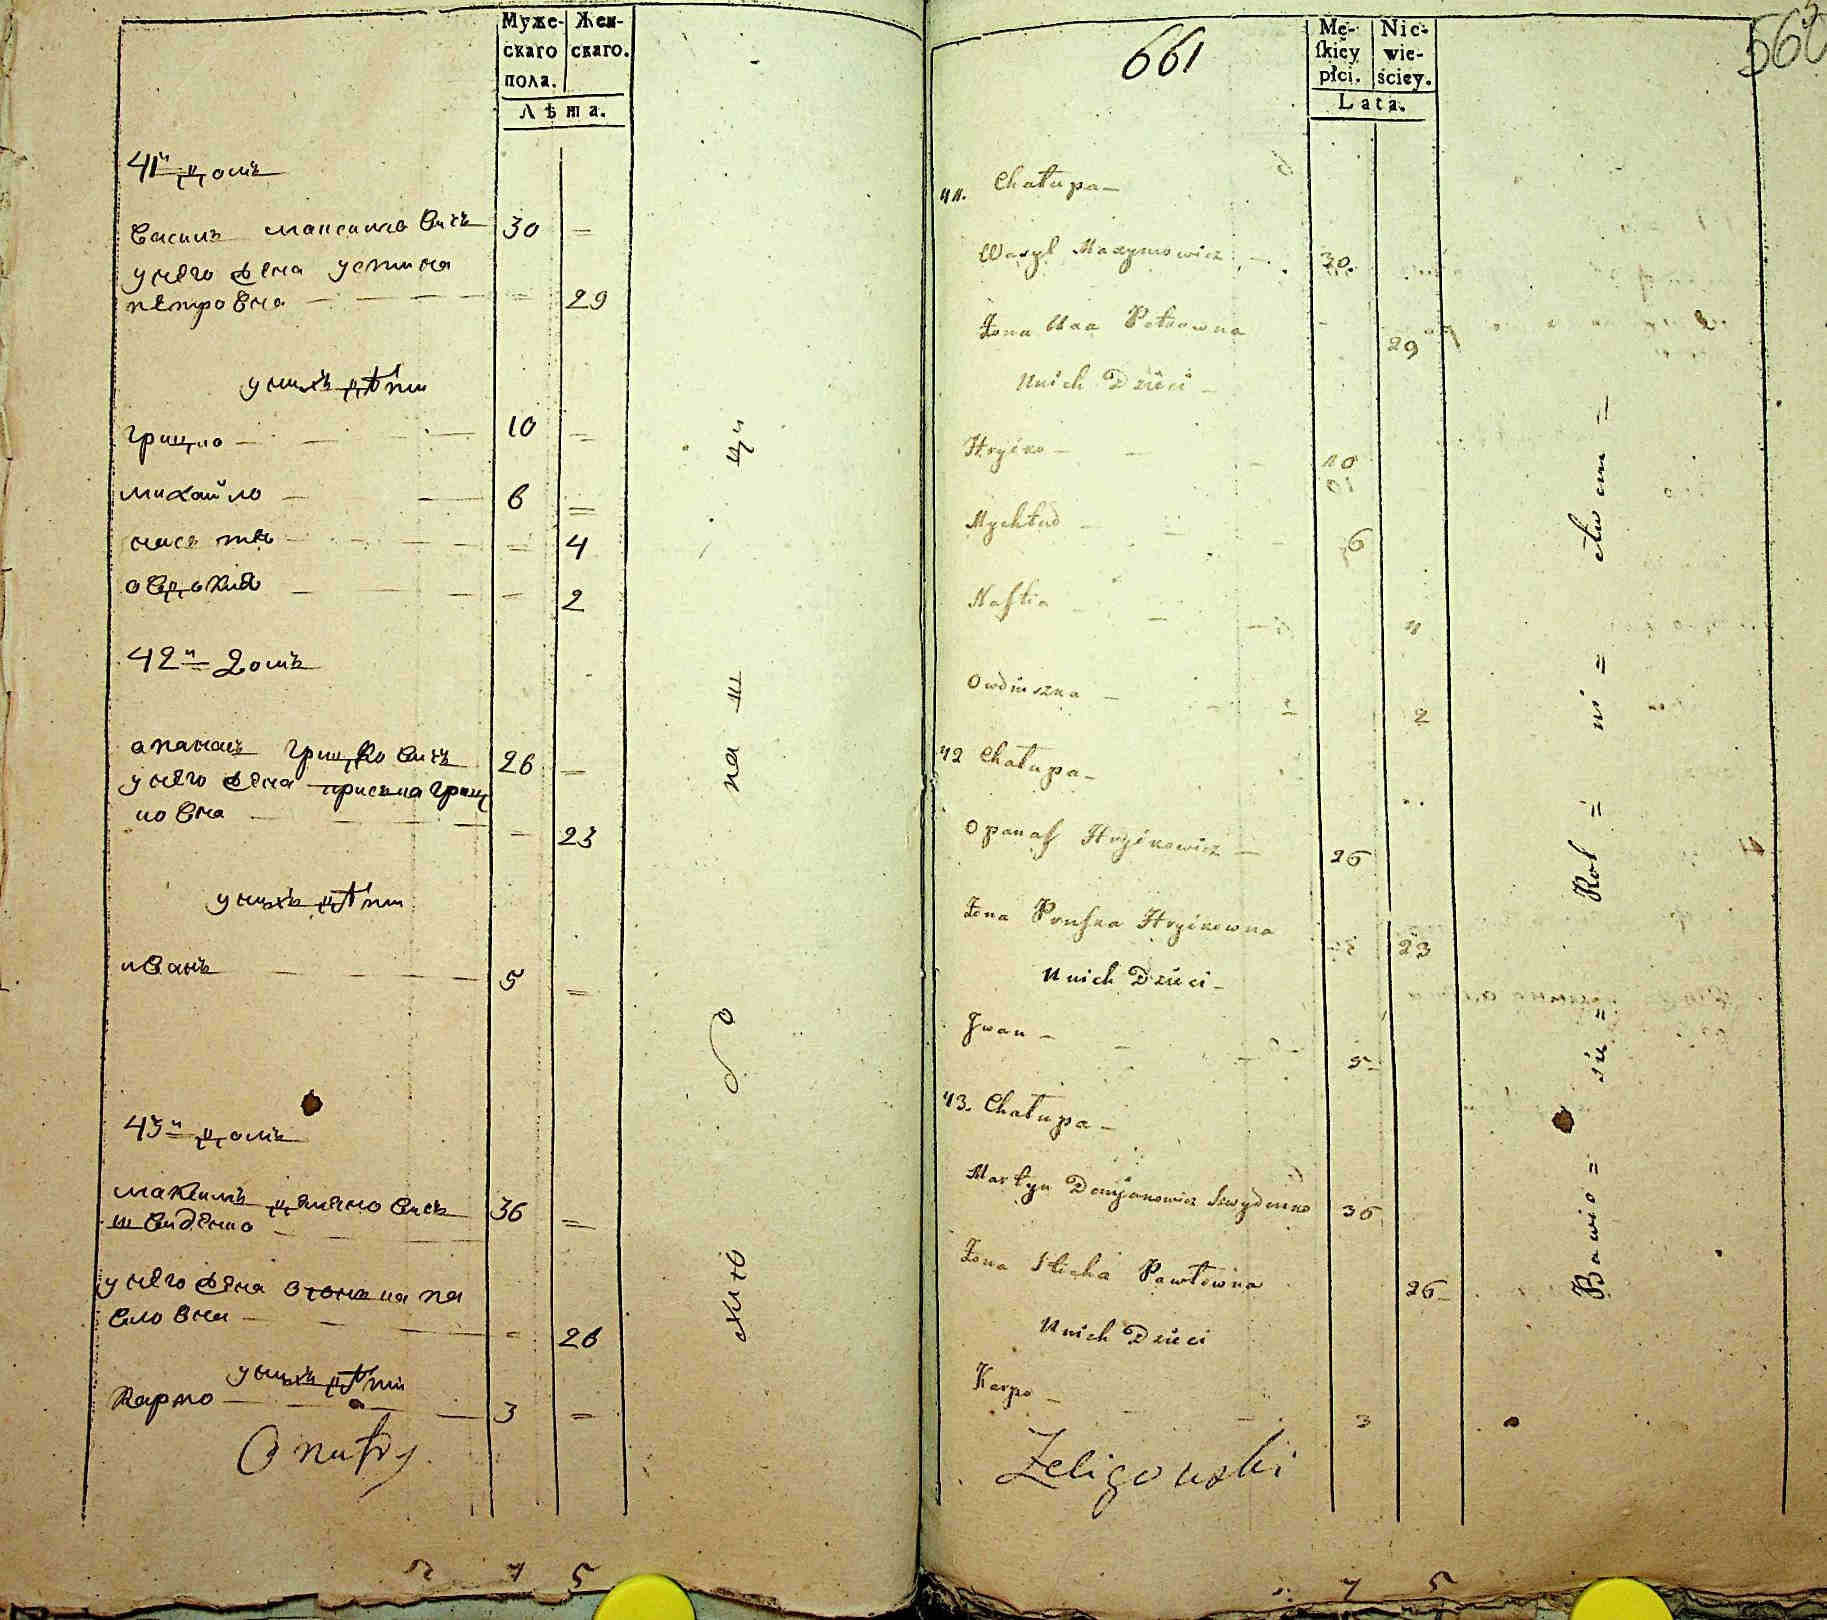 Муже- Жен-
скаго скаго.
пола.
Лѣта.
41й домъ
Василь Максимовичъ 30 =
у него жена Устина
Петровна — 29
у нихъ дѣти
Грицко 10 =
Михайло 6 =
Настя = 4
Овдокия = 2
42й домъ
Апанасъ Грицковичъ 26 =
у него жена Приська Гриц
ковна — 23
у нихъ дѣти
Иванъ 5 =
43й домъ
Максимъ Демяновичъ 36 =
Швиденко
у него жена па
вловна — 26
у нихъ дѣти
Карпо 3 =
хлѣбо па ш ци
2 7 5
661
560
Mę- Nie-
skiey wie-
płci. ściey.
Lata.
41. Chałupa —
Wasyl Maxymowicz — 30.
Żona Petrowna — 29
U nich Dzieci —
Hryćko — 10
6
Nastia — 4
Owdiuszka — 2
42 Chałupa —
Opanas Hryćkowicz — 26
Żona Pruska Hryćkowna 23
U nich Dzieci —
Jwan — 5
43. Chałupa —
Martyn Demjanowicz Szwydenko 36
Żona Pawłowna 26
U nich Dzieci
Karpo — 3
Żeligowski
Bawio = się = Rol = ni = ctwem =
7 5